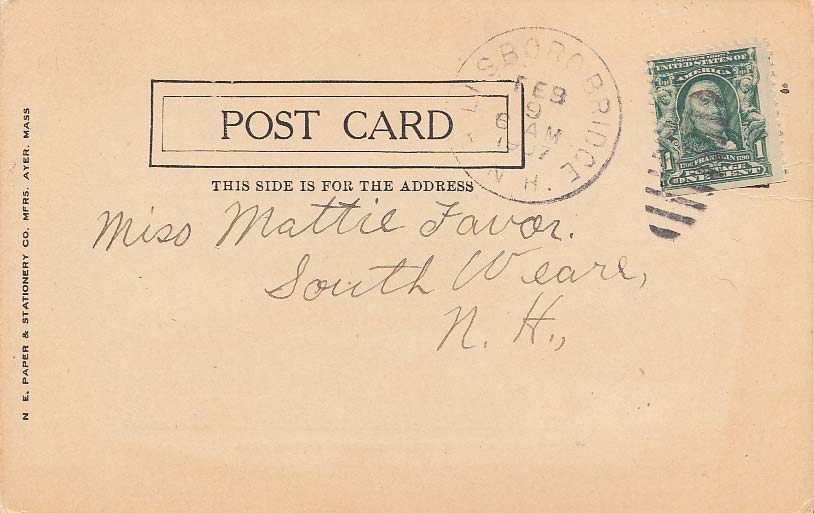 POST CARD
THIS SIDE IS FOR THE ADDRESS
LLSBORO BRIDGE
N. H.
FEB
9
6 AM
1907
SERIES 1902
UNITED STATES OF
AMERICA
1706 FRANKLIN 1790
POSTAGE
1 ONE CENT 1
Miss Mattie Favor.
South Weare,
N. H.,
N. E. PAPER & STATIONERY CO. MFRS. AYER, MASS